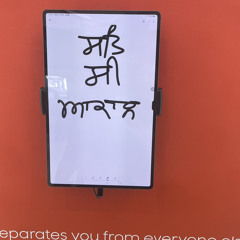 ਸੀ
ਆਕਾਲ
eparates you from everyone el